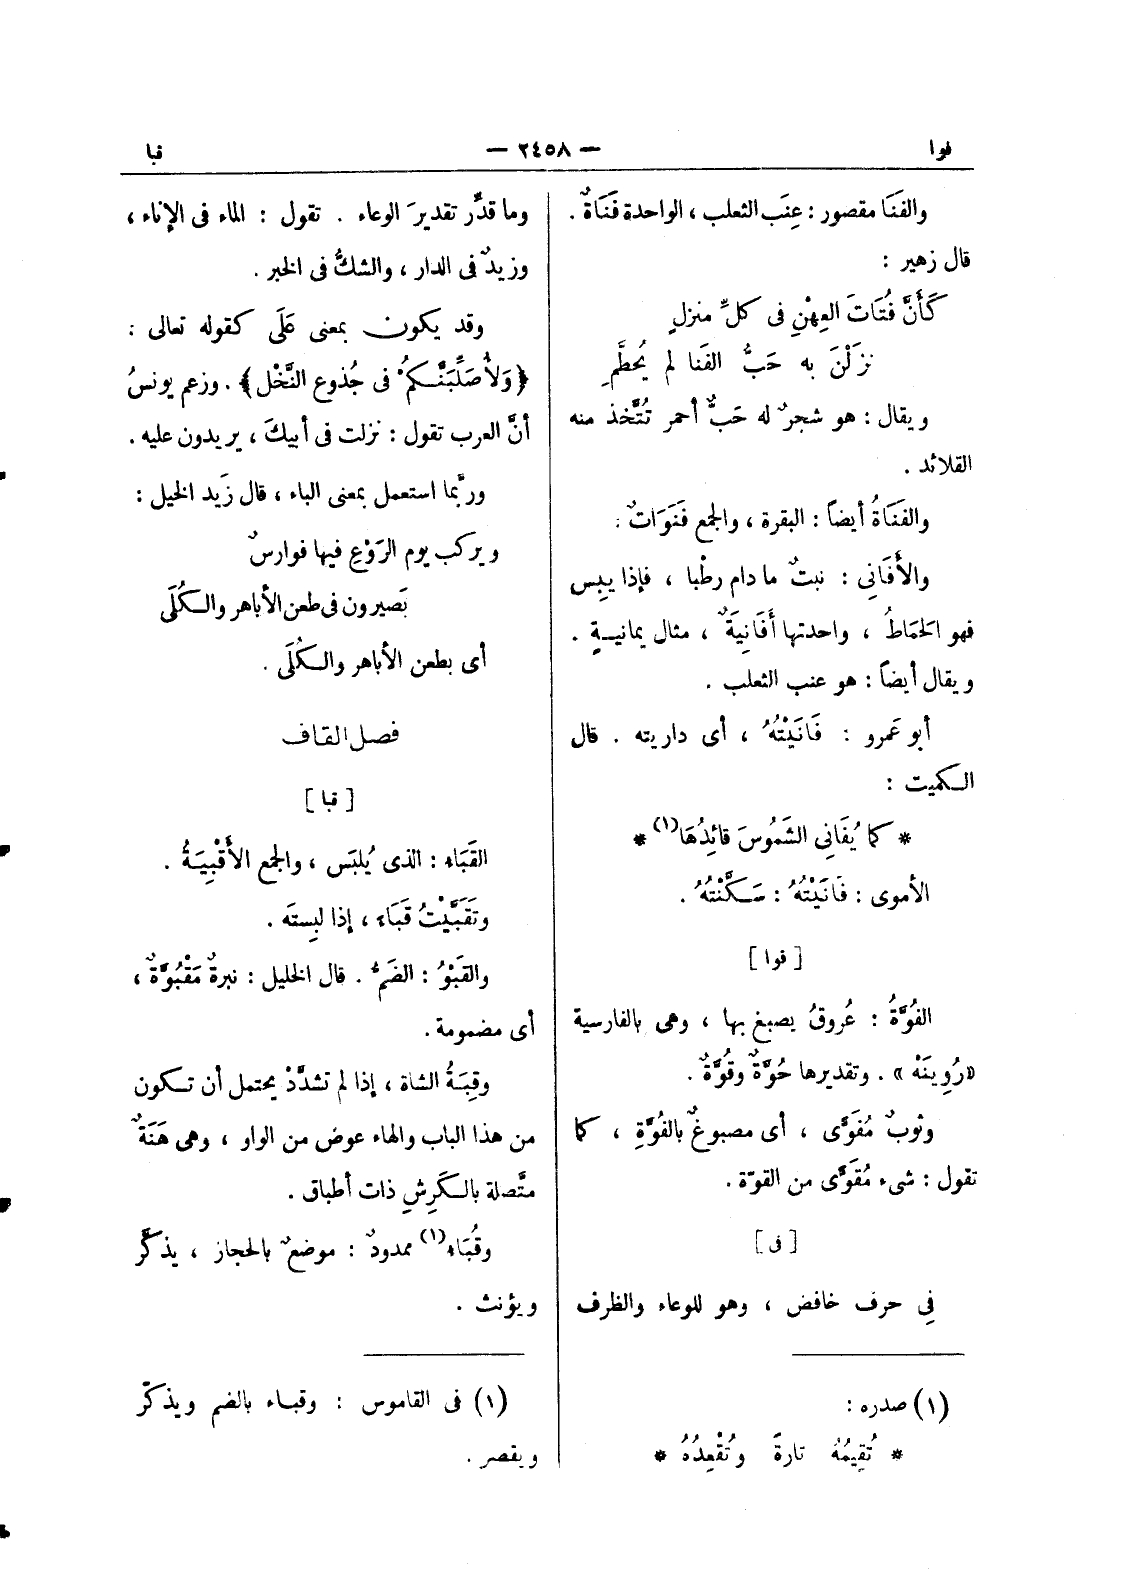 فوا
— ٢٤٥٨ —
قبا
والفَنَا مقصور : عِنَب الثعلب ، الواحدة فَنَاةٌ .
قال زهير :
كَأَنَّ فُتَاتَ العِهْنِ فى كلِّ منزلٍ
نزَلْنَ به حَبُّ الفَنا لم يُحطَّمِ
ويقال : هو شجرٌ له حَبٌّ أحمر تُتَّخذ منه
القلائد .
والفَنَاةُ أيضاً : البقرة ، والجمع فَنَوَاتٌ .
والأَفَانِى : نبتٌ ما دام رطْبا ، فإذا يبِس
فهو الحَمَاطُ ، واحدتها أَفَانِيَةٌ ، مثال يمانيةٍ .
ويقال أيضاً : هو عنب الثعلب .
أبو عَمرو : فَانَيْتُهُ ، أى داريته . قال
الكميت :
* كما يُفَانِى الشَمُوسَ قائِدُهَا(١) *
الأموى : فَانَيْتُهُ : سَكَّنْتُهُ .
[ فوا ]
الفُوَّةُ : عُروقٌ يصبغ بها ، وهى بالفارسية
«رُوِينَهْ» . وتقديرها حُوَّةٌ وقُوَّةٌ .
وثوبٌ مُفَوًّى ، أى مصبوغٌ بالفُوَّةِ ، كما
تقول : شىء مُقَوًّى من القوّة .
[ فى ]
فِى حرف خافض ، وهو للوعاء والظرف
(١) صدره :
* تُقِيمُهُ تارةً وتُقْعِدُهُ *
وما قدِّر تقديرَ الوعاء . تقول : الماء فى الإناء ،
وزيدٌ فى الدار ، والشكُّ فى الخبر .
وقد يكون بمعنى عَلَى كقوله تعالى :
﴿وَلَأُصَلِّبَنَّكمُ فى جُذوع النَّخْل﴾ . وزعم يونسُ
أنَّ العرب تقول : نزلت فى أبيكَ ، يريدون عليه .
وربَّما استعمل بمعنى الباء ، قال زَيد الخيل :
ويركب يوم الرَوْعِ فيها فوارسٌ
بَصيرون فى طعن الأباهر والكُلَى
أى بطعن الأباهر والكُلَى .
فصل القاف
[ قبا ]
القَبَاء : الذى يُلبَس ، والجمع الأَقْبِيَةُ .
وتَقَبَّيْتُ قَبَاء ، إذا لبِستَه .
والقَبْوُ : الضَمُّ . قال الخليل : نبرةٌ مَقْبُوَّةٌ ،
أى مضمومة .
وقِبَةُ الشاة ، إذا لم تشدَّدْ يحتمل أن تكون
من هذا الباب والهاء عوض من الواو ، وهى هَنَةٌ
متَّصلة بالكَرِشِ ذات أطباق .
وقُبَاء(١) ممدودٌ : موضعٌ بالحجاز ، يذكَّر
ويؤنث .
(١) فى القاموس : وقباء بالضم ويذكّر
ويقصر .